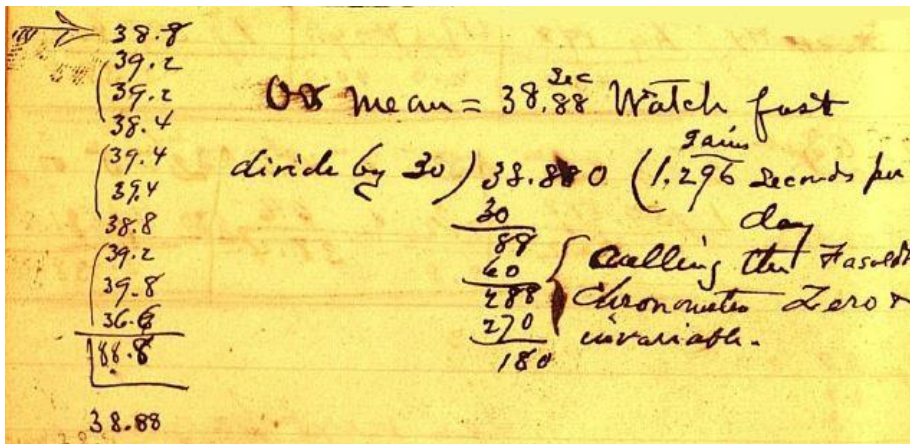 38.8
39.2
39.2
38.4
39.4
39.4
38.8
39.2
39.8
36.6
188.8
38.88
Or mean = 38.88 Sec Watch fast
divide by 30) 38.880 (1.296 gains seconds per
day
30
88
60
288
270
180
calling the
Chronometer Zero &
invariable.